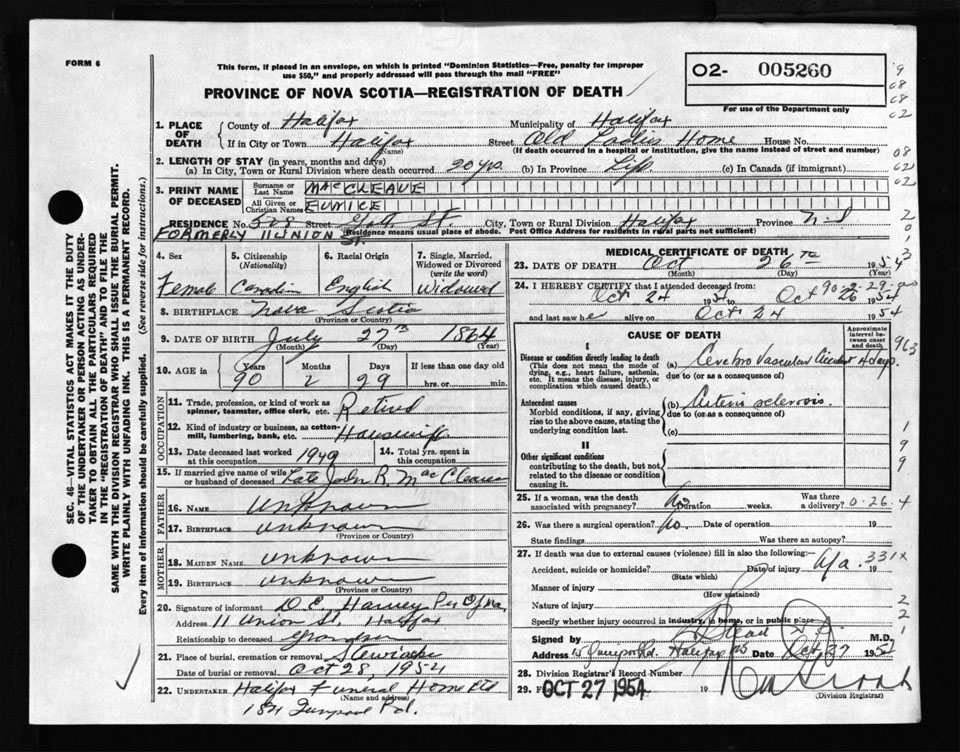 FORM 6
This form, if placed in an envelope, on which is printed "Dominion Statistics—Free, penalty for improper
use $50," and properly addressed will pass through the mail "FREE"
PROVINCE OF NOVA SCOTIA—REGISTRATION OF DEATH
02- 005260
For use of the Department only
1. PLACE OF DEATH
County of Halifax Municipality of Halifax
If in City or Town Halifax Street Old Ladies Home House No.
(Name) (If death occurred in a hospital or institution, give the name instead of street and number)
2. LENGTH OF STAY (in years, months and days)
(a) In City, Town or Rural Division where death occurred 20 yrs. (b) In Province Life (c) In Canada (if immigrant)
3. PRINT NAME OF DECEASED
Surname or Last Name MACCLEAVE
All Given or Christian Names EUNICE
RESIDENCE No. 528 Street St. City, Town or Rural Division Halifax Province N.S
FORMERLY 11 UNION ST. Residence means usual place of abode. Post Office Address for residents in rural parts not sufficient)
4. Sex Female
5. Citizenship (Nationality) Canadian
6. Racial Origin English
7. Single, Married, Widowed or Divorced (write the word) Widowed
8. BIRTHPLACE Nova Scotia
(Province or Country)
9. DATE OF BIRTH July 27th 1864
(Month) (Day) (Year)
10. AGE in Years 90 Months 2 Days 29 If less than one day old
hrs. or min.
OCCUPATION
11. Trade, profession, or kind of work as spinner, teamster, office clerk, etc. Retired
12. Kind of industry or business, as cotton-mill, lumbering, bank, etc. Housewife
13. Date deceased last worked at this occupation 1949
14. Total yrs. spent in this occupation
15. If married give name of wife or husband of deceased Late John R. MacCleave
FATHER
16. Name Unknown
17. BIRTHPLACE Unknown
(Province or Country)
MOTHER
18. MAIDEN NAME Unknown
19. BIRTHPLACE Unknown
(Province or Country)
20. Signature of informant D E. Harvey Per
Address 11 Union St. Halifax
Relationship to deceased Grandson
21. Place of burial, cremation or removal Stewiacke
Date of burial or removal Oct 28, 1954
22. UNDERTAKER Halifax Funeral Home Ltd
(Name and address)
Rd.
MEDICAL CERTIFICATE OF DEATH
23. DATE OF DEATH Oct 26th 1954
(Month) (Day) (Year)
24. I HEREBY CERTIFY that I attended deceased from:
90-2-29-
Oct 24 1954 Oct 26 1954
and last saw h e alive on Oct 24 1954
CAUSE OF DEATH
Approximate interval between onset and death
I
Disease or condition directly leading to death
(This does not mean the mode of dying, e.g., heart failure, asthenia, etc. It means the disease, injury, or complication which caused death.)
(a) Cerebro Vascular Accident 4 days.
due to (or as a consequence of)
Antecedent causes
Morbid conditions, if any, giving rise to the above cause, stating the underlying condition last.
(b) Arterio sclerosis.
due to (or as a consequence of)
(c)
II
Other significant conditions
contributing to the death, but not related to the disease or condition causing it.
25. If a woman, was the death associated with pregnancy? No Duration weeks. Was there a delivery? 0.26.4
26. Was there a surgical operation? No. Date of operation 19
State findings Was there an autopsy?
27. If death was due to external causes (violence) fill in also the following:—
Accident, suicide or homicide? Date of injury 19
331X
(State which)
Manner of injury
(How sustained)
Nature of injury
Specify whether injury occurred in industry, in home, or in public place
Signed by M.D.
Address Halifax NS Date Oct. 27 1954
28. Division Registrar's Record Number
29. OCT 27 1954 19
(Division Registrar)
SEC. 46—VITAL STATISTICS ACT MAKES IT THE DUTY
OF THE UNDERTAKER OR PERSON ACTING AS UNDER-
TAKER TO OBTAIN ALL THE PARTICULARS REQUIRED
IN THE "REGISTRATION OF DEATH" AND TO FILE THE
SAME WITH THE DIVISION REGISTRAR WHO SHALL ISSUE THE BURIAL PERMIT.
WRITE PLAINLY WITH UNFADING INK. THIS IS A PERMANENT RECORD.
Every item of information should be carefully supplied. (See reverse side for instructions.)
9
08
08
02
08
02
02
2
0
1
3
963
1
9
9
2
2
1